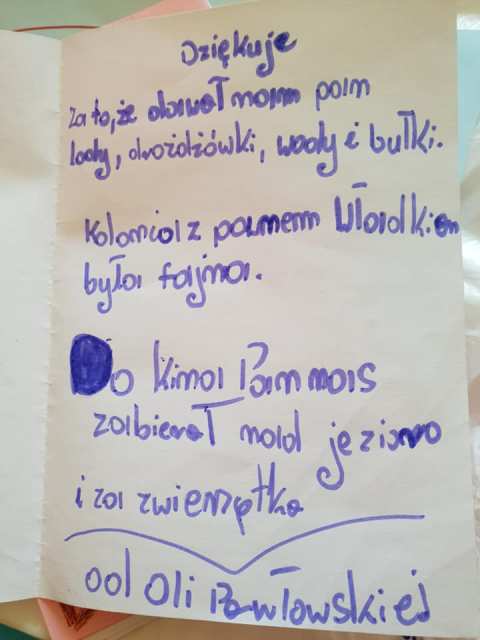 Dziękuje
Za to, że dawał nam pan
lody, drożdżówki, wody i bułki.
Kolonia z panem Władkiem
była fajna.
Do kina Pan nas
zabierał nad jezioro
i za zwierzątka
od Oli Pawłowskiej